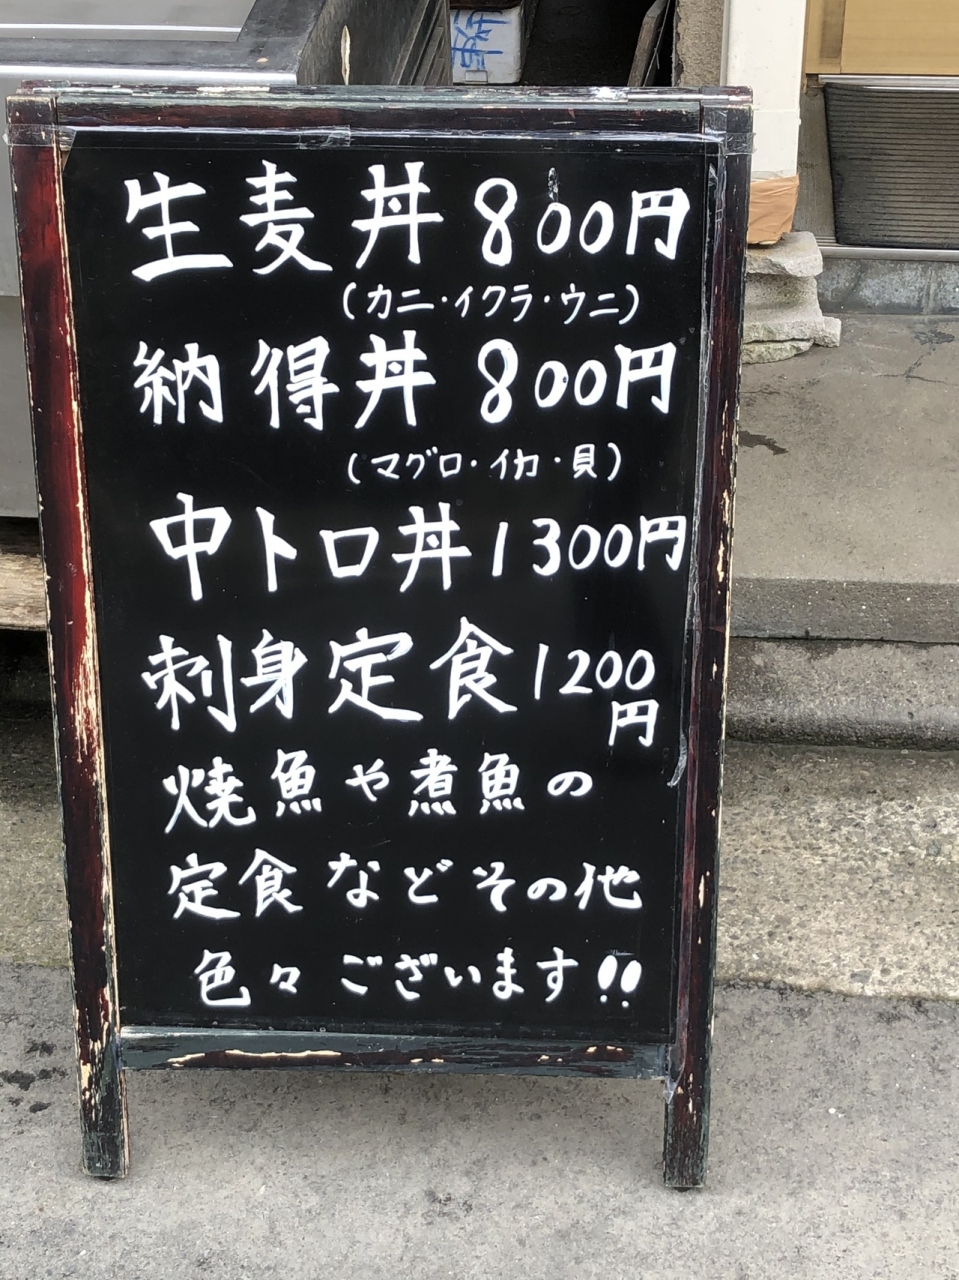 生麦丼 800円
(カニ・イクラ・ウニ)
納得丼 800円
(マグロ・イカ・貝)
中トロ丼 1300円
刺身定食 1200
円
焼魚や煮魚の
定食などその他
色々ございます!!